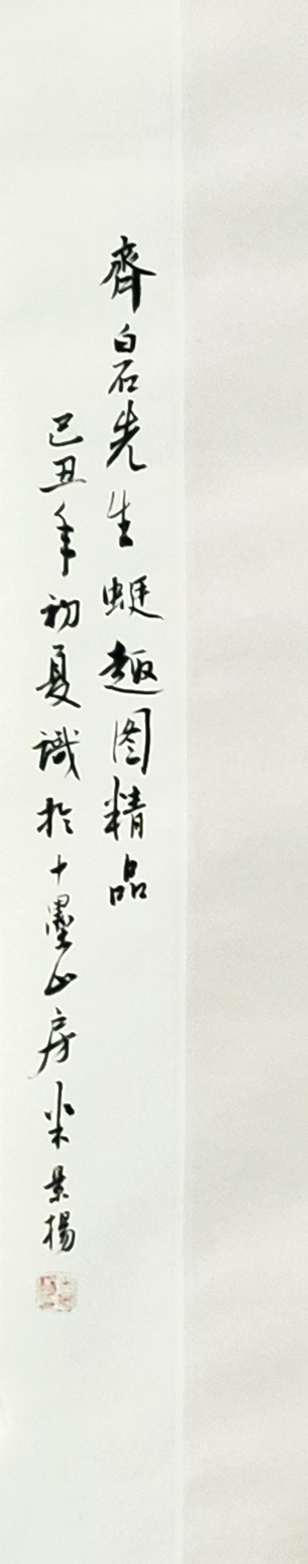 齊白石先生蜓趣图精品
己丑年初夏識於十墨山房米景揚